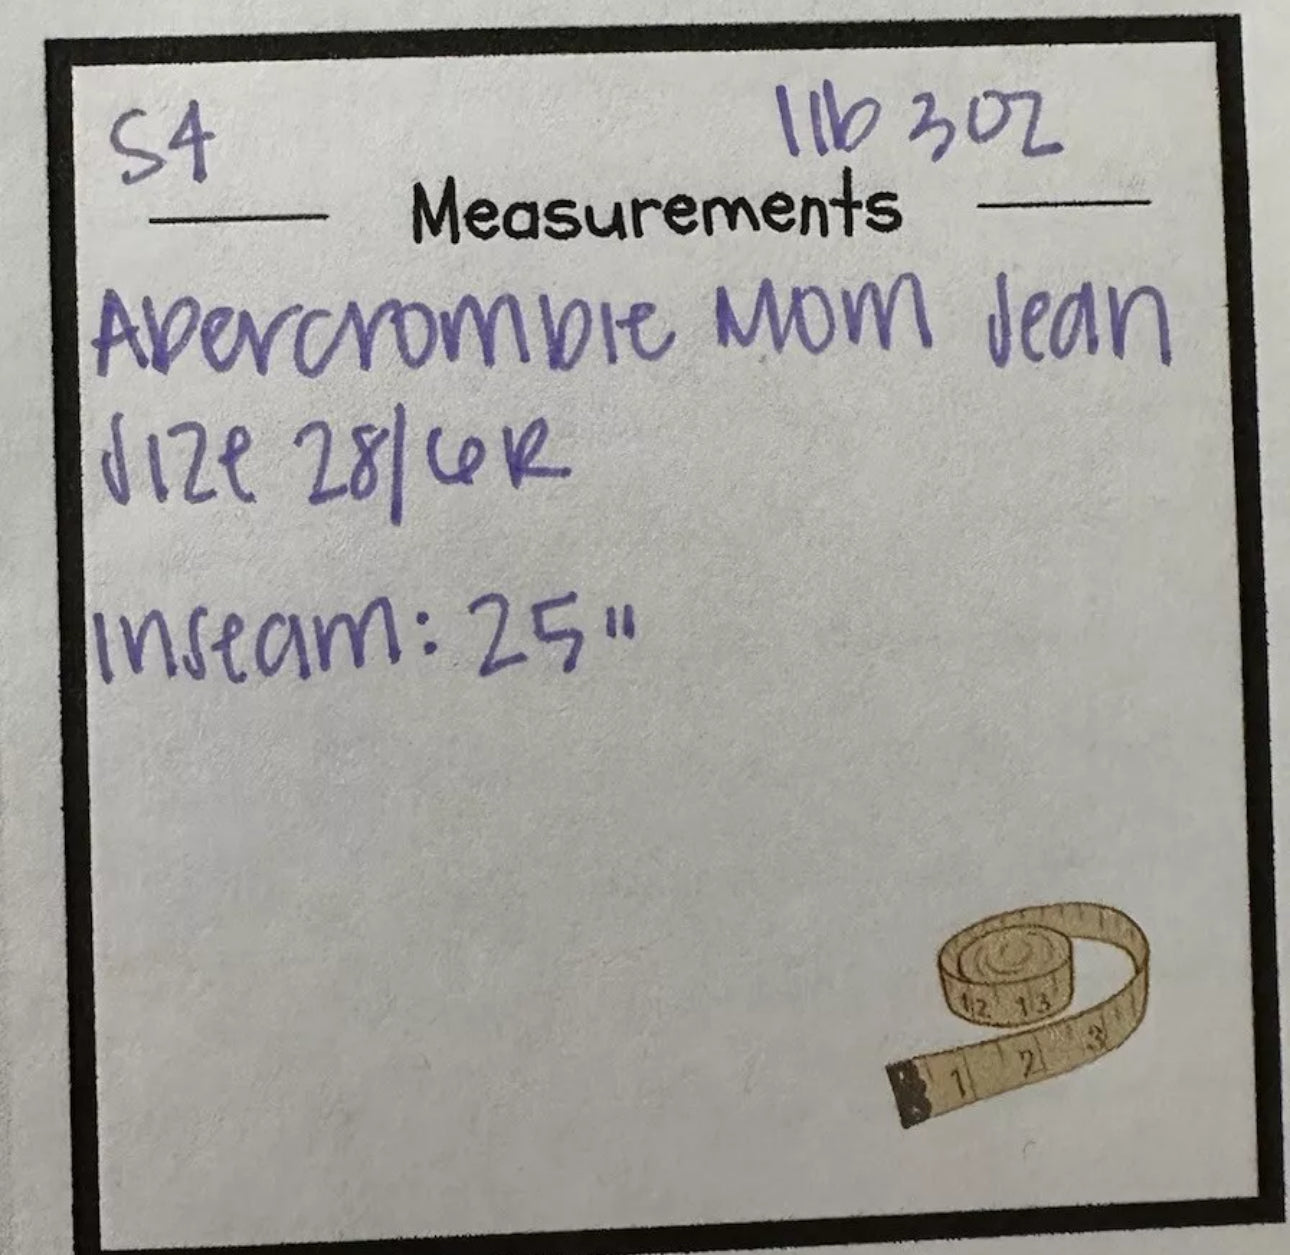 S4 1lb 3oz
Measurements
Abercrombie Mom Jean
Size 28/6R
Inseam: 25"
12 13
1 2 3